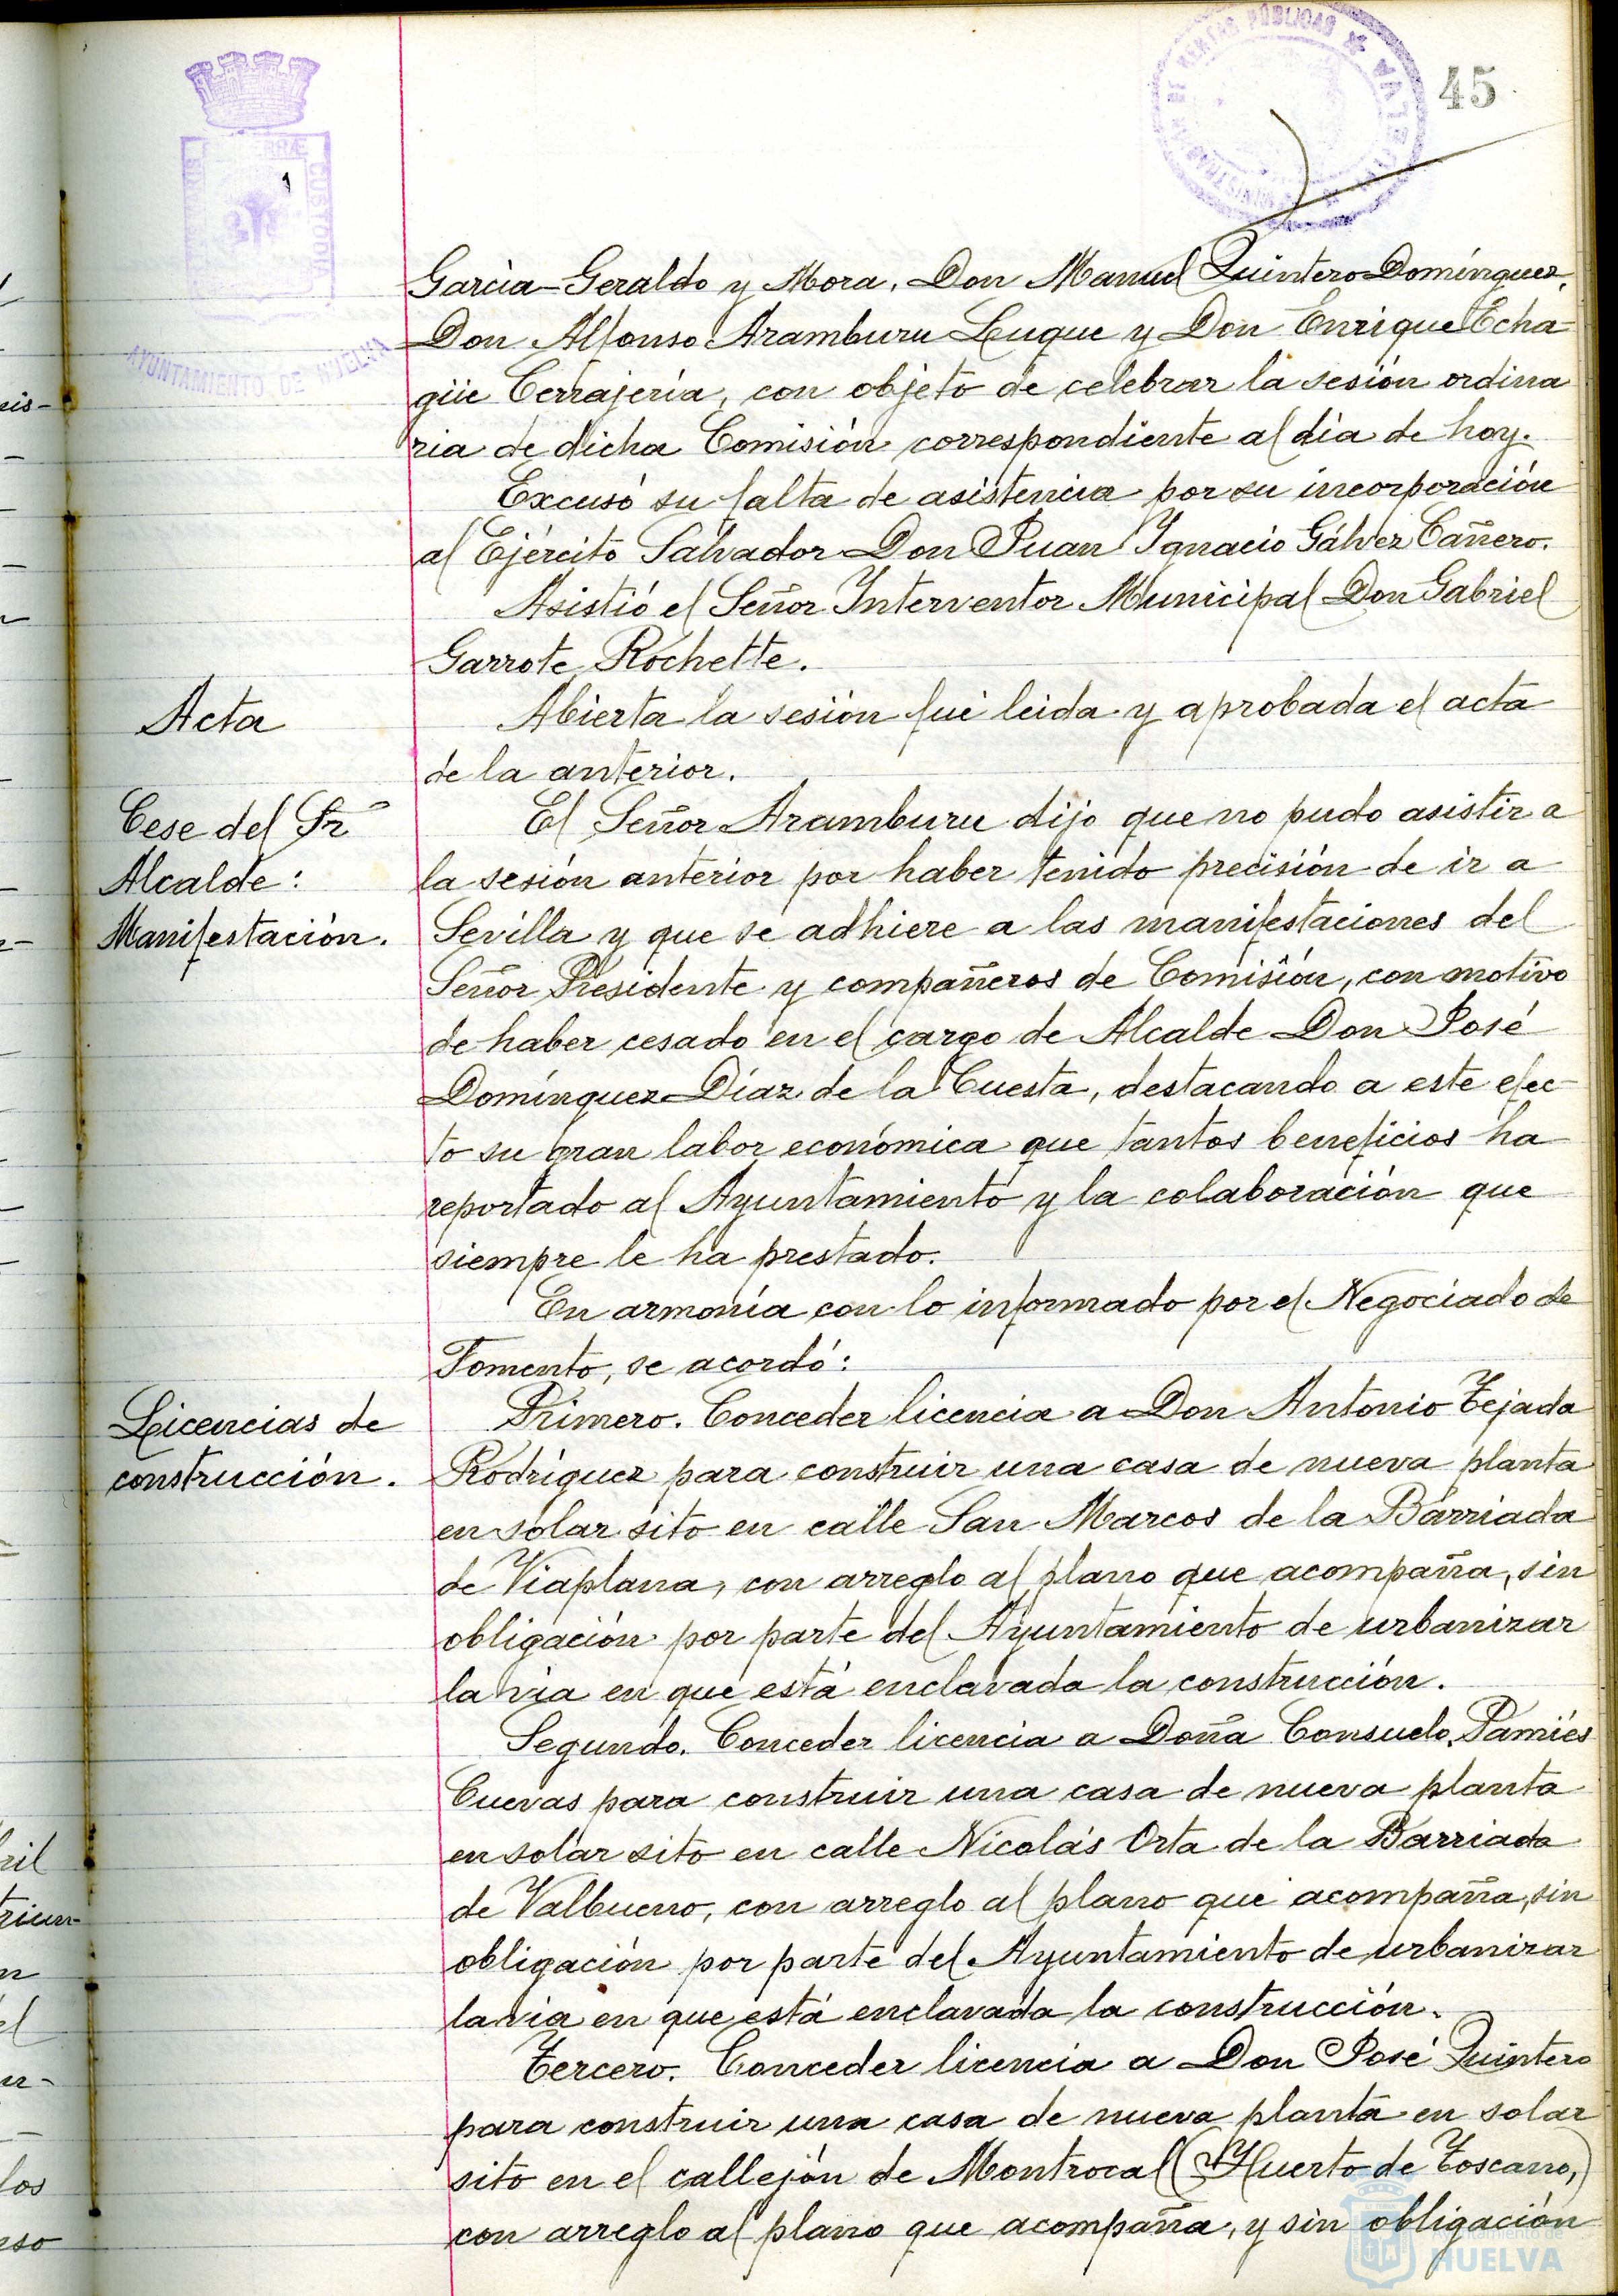 45
García-Geraldo y Mora, Don Manuel Quintero Domínguez,
Don Alfonso Aramburu Luque y Don Enrique Echa
güe Cerrajería, con objeto de celebrar la sesión ordina
ria de dicha Comisión correspondiente al día de hoy.
Excusó su falta de asistencia por su incorporación
al Ejército Salvador Don Juan Ignacio Gálvez Cañero.
Asistió el Señor Interventor Municipal Don Gabriel
Garrote Rochette.
Acta
Abierta la sesión fué leida y aprobada el acta
de la anterior.
Cese del Sr
Alcalde:
Manifestación.
El Señor Aramburu dijo que no pudo asistir a
la sesión anterior por haber tenido precisión de ir a
Sevilla y que se adhiere a las manifestaciones del
Señor Presidente y compañeros de Comisión, con motivo
de haber cesado en el cargo de Alcalde Don José
Domínguez Díaz de la Cuesta, destacando a este efec
to su gran labor económica que tantos beneficios ha
reportado al Ayuntamiento y la colaboración que
siempre le ha prestado.
En armonía con lo informado por el Negociado de
Fomento, se acordó:
Licencias de
construcción.
Primero. Conceder licencia a Don Antonio Tejada
Rodríguez para construir una casa de nueva planta
en solar sito en calle San Marcos de la Barriada
de Viaplana, con arreglo al plano que acompaña, sin
obligación por parte del Ayuntamiento de urbanizar
la vía en que está enclavada la construcción.
Segundo. Conceder licencia a Doña Consuelo Pamiés
Cuevas para construir una casa de nueva planta
en solar sito en calle Nicolás Orta de la Barriada
de Valbueno, con arreglo al plano que acompaña, sin
obligación por parte del Ayuntamiento de urbanizar
la vía en que está enclavada la construcción.
Tercero. Conceder licencia a Don José Quintero
para construir una casa de nueva planta en solar
sito en el callejón de Montrocal (Huerto de Toscano,)
con arreglo al plano que acompaña, y sin obligación
AYUNTAMIENTO DE HUELVA
CUSTODIA
PÚBLICAS
Ayuntamiento de
HUELVA